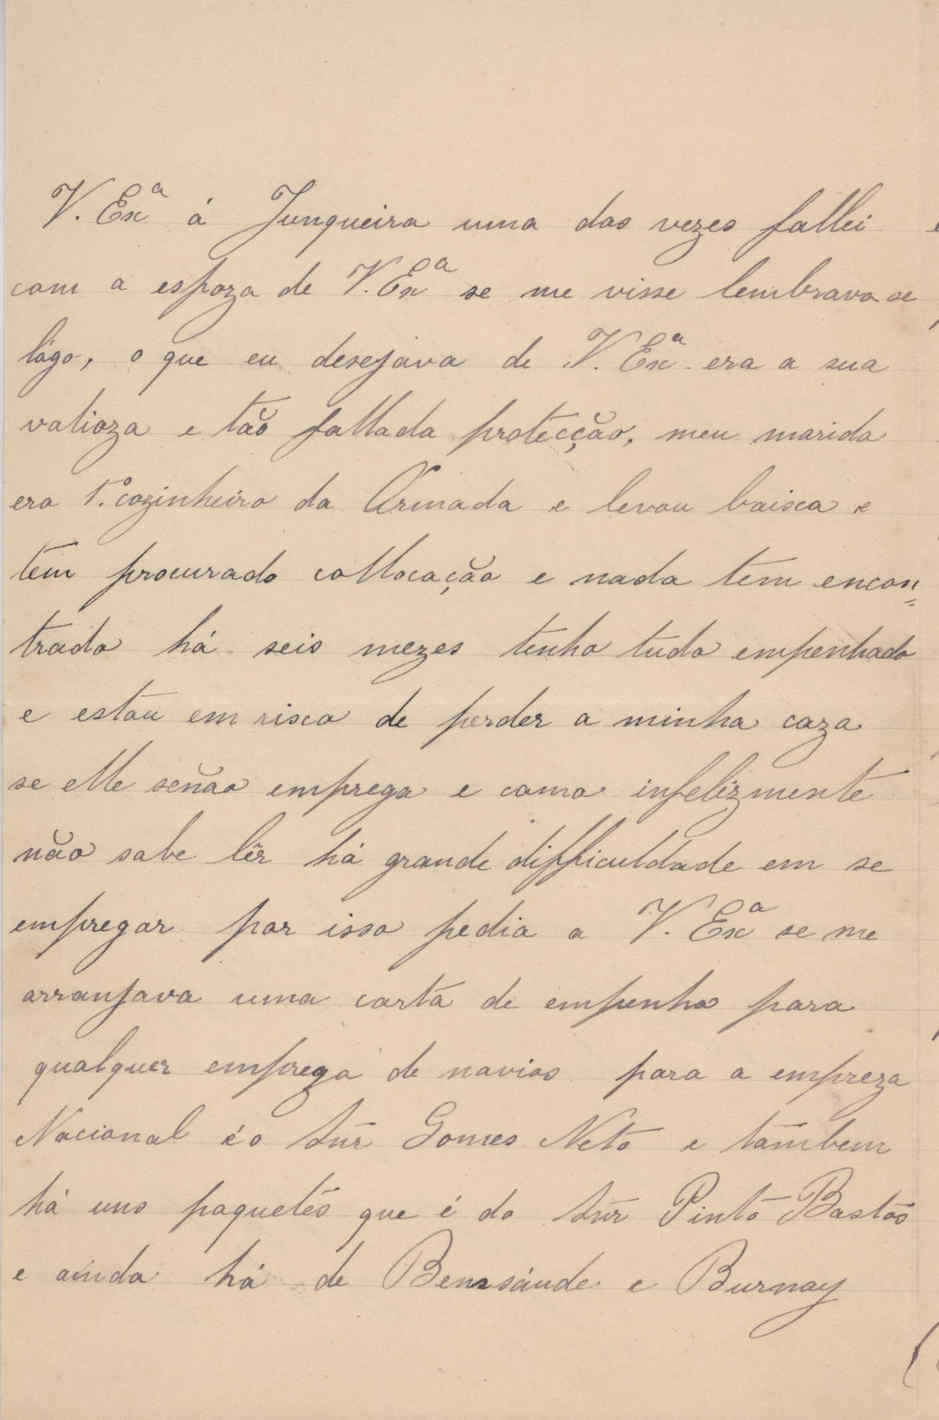 V. Exª á Junqueira uma das vezes fallei
com a espoza de V. Exª se me visse lembrava se
lógo, o que eu desejava de V. Exª era a sua
valioza e tão fallada protecção, meu marido
era 1.º cozinheiro da Armada e levou baixa e
tem procurado collocação e nada tem encon=
trado há seis mezes tenho tudo empenhado
e estou em risco de perder a minha caza
se elle senão emprega e como infelizmente
não sabe lêr há grande difficuldade em se
empregar por isso pedia a V. Exª se me
arranjava uma carta de empenho para
qualquer empreza de navios para a empreza
Nacional é o Snr Gomes Neto e tambem
há uns paquetes que é do Snr Pinto Bastos
e ainda há de Bensáude e Burnay